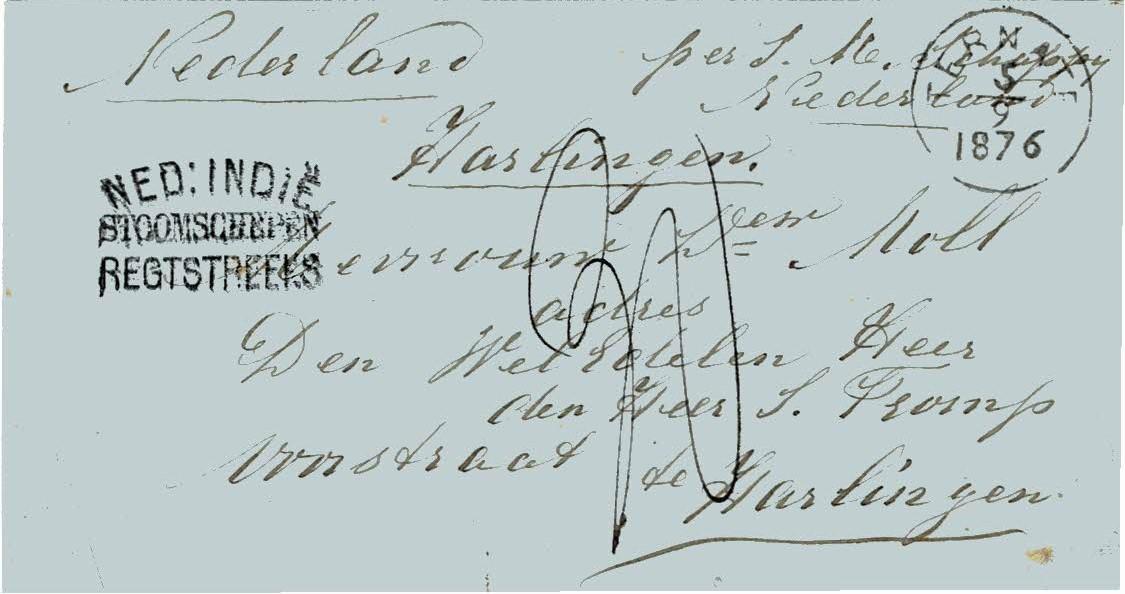 Nederland
per S. M. Schuppy
Nederland
TERNATE
5
9
1876
Harlingen.
NED: INDIË
STOOMSCHEPEN
REGTSTREEKS
Mevrouw Dem Moll
adres
Den Wel Edelen Heer
den Heer S. Tromp
Voorstraat te Harlingen.